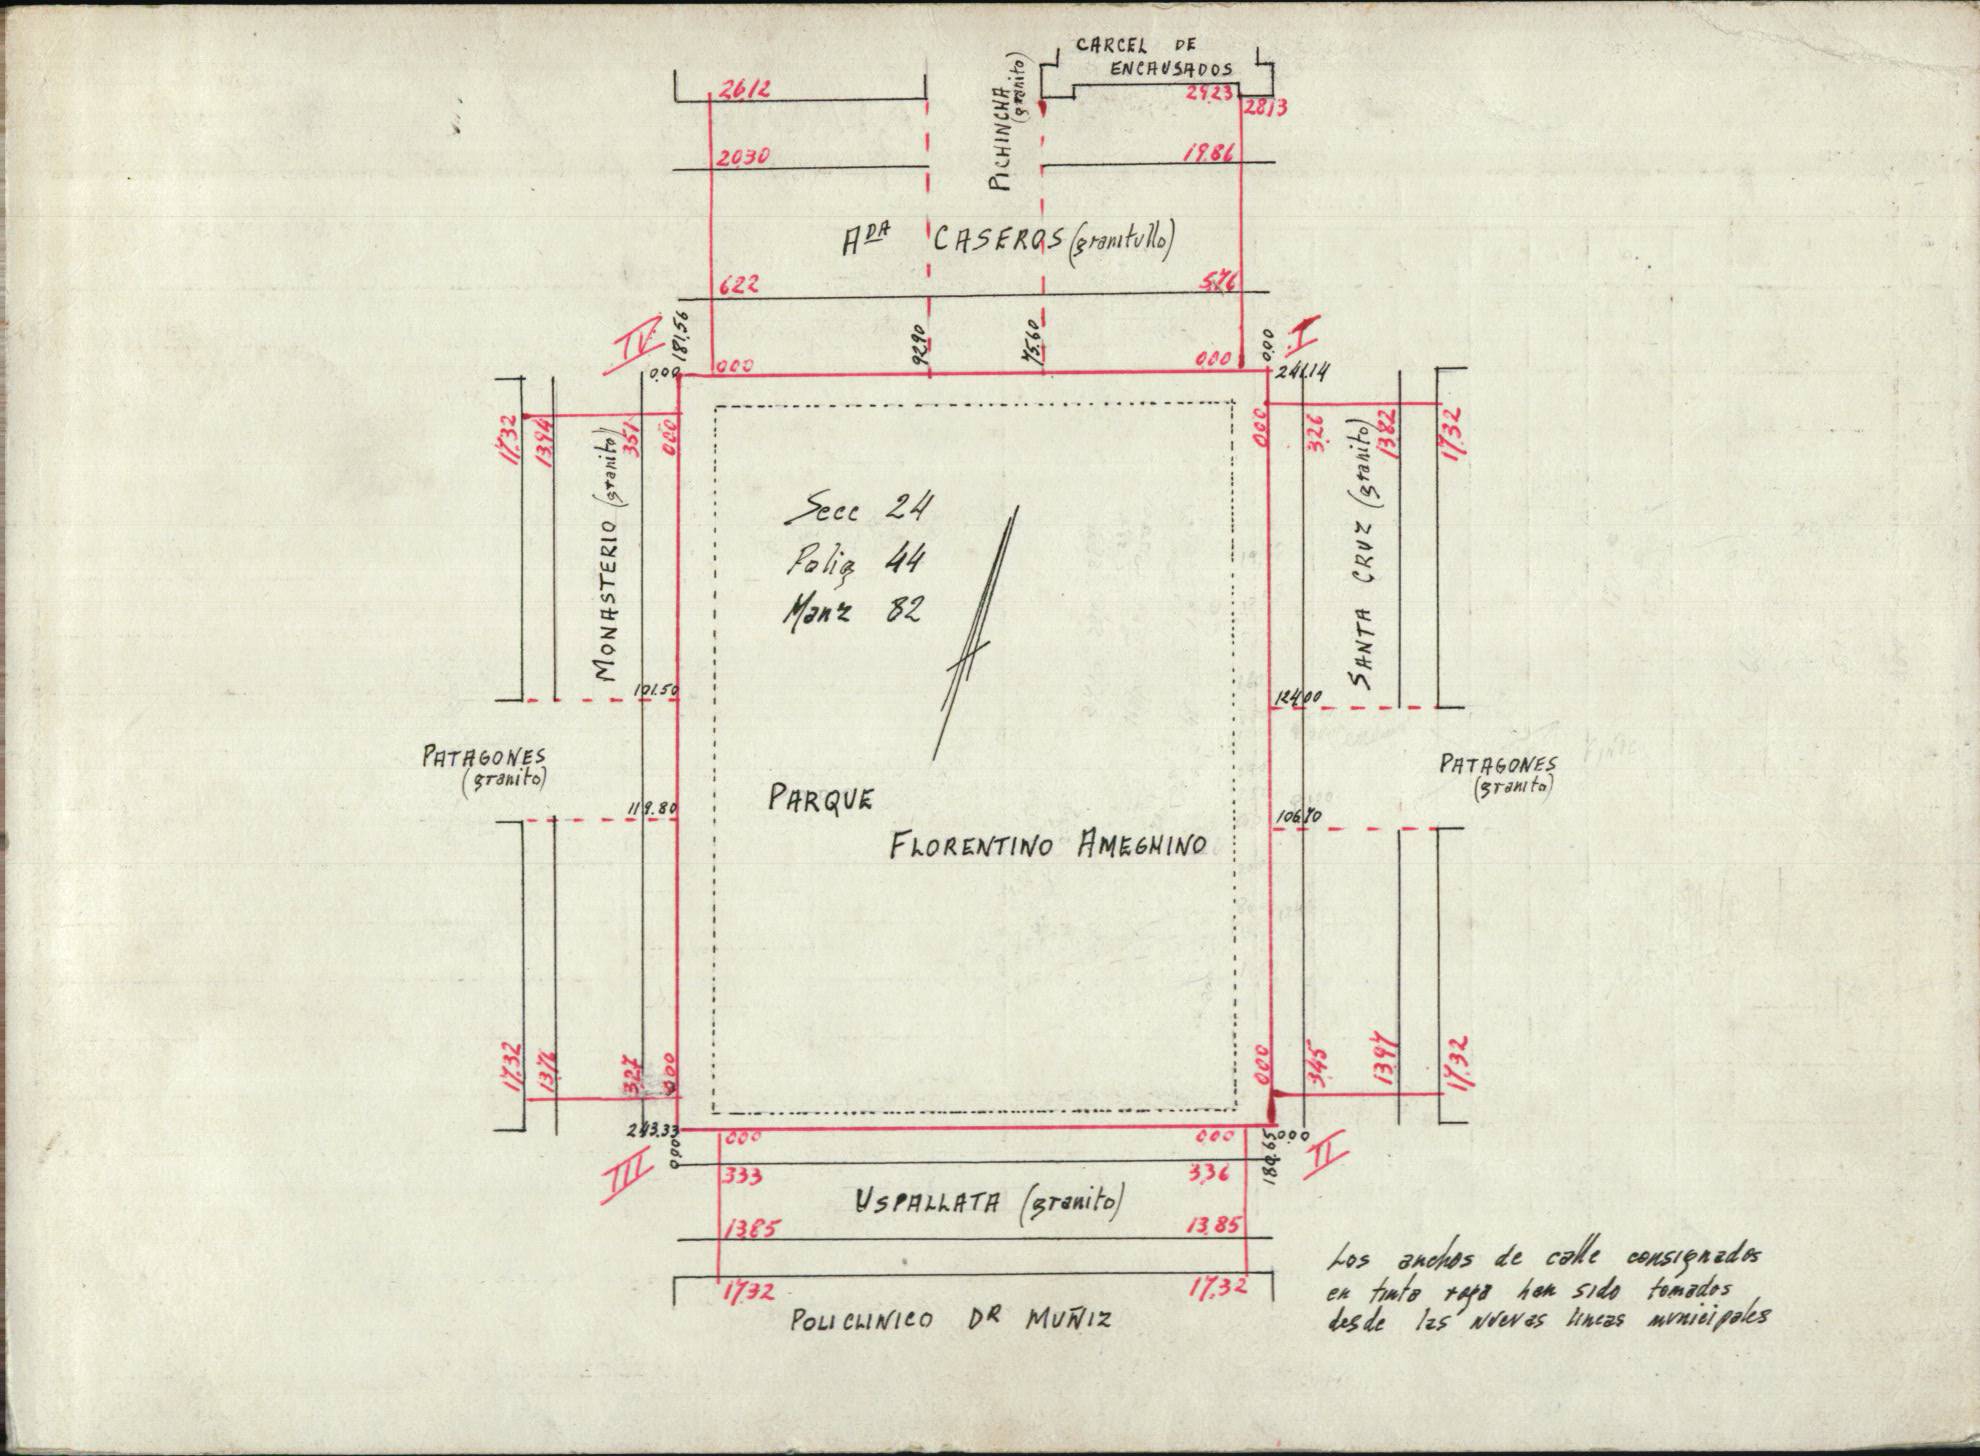 CARCEL DE
ENCAUSADOS
PICHINCHA
(granito)
2612
29.23
2813
2030
19.86
ADA CASEROS (granitullo)
622
5.76
IV
181.56
92.90
75.60
0.00
I
0.00
000
000
241.14
17.32
13.94
351
000
MONASTERIO (granito)
000
3.26
SANTA CRUZ (granito)
13.82
17.32
Secc 24
Polig 44
Manz 82
101.50
124.00
PATAGONES
(granito)
PATAGONES
(granito)
119.80
106.70
PARQUE
FLORENTINO AMEGHINO
17.32
13.76
3.27
000
000
3.45
13.97
17.32
243.33
0.00
000
000
180.65
0.00
III
II
333
3.36
USPALLATA (granito)
13.85
13.85
17.32
17.32
POLICLINICO DR MUÑIZ
Los anchos de calle consignados
en tinta roja han sido tomados
desde las nuevas lineas municipales